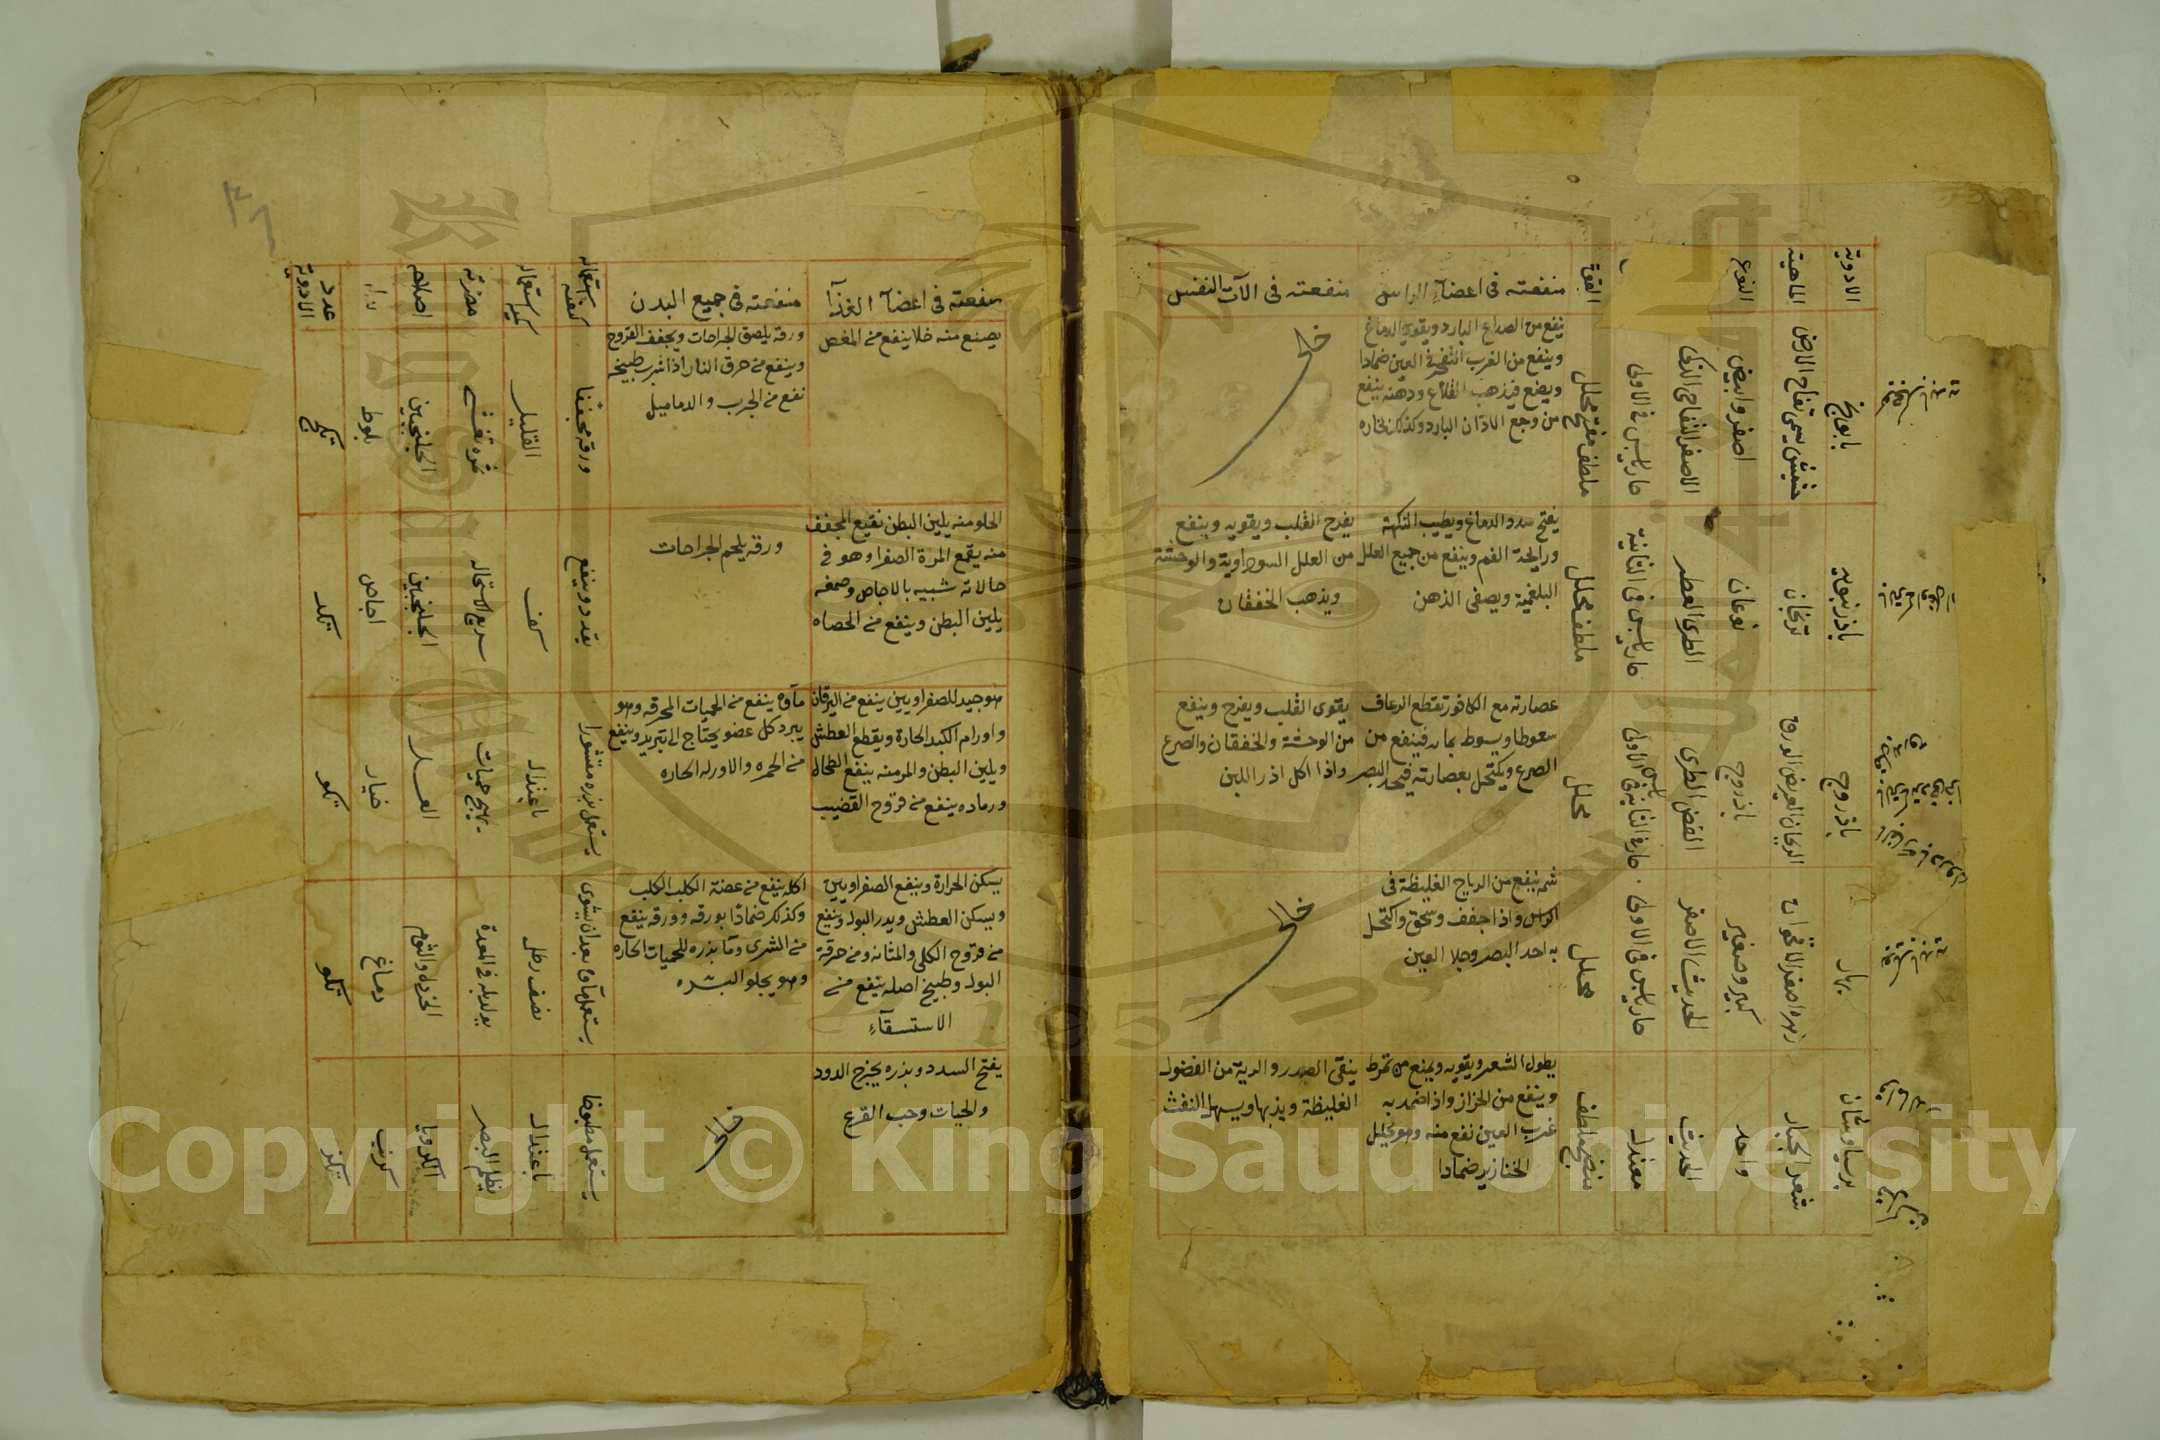 الادوية
الماهية
النوع
القوة
منفعته فى اعضاء الراس
منفعته فى الآت النفس
بابونج
حشيش يسمى تفاح الارض
اصفر وابيض
الاصفر التفاحى الذكى
حار يابس فى الاولى
ملطف مفتح محلل
ينفع من الصداع البارد ويقوى الدماغ
وينفع من الغرب المنفجر فى العين ضمادا
ويضغ فيذهب القلاع ودهنه ينفع
من وجع الاذان البارد وكذلك بخاره
باذرنبويه
ترنجان
نوعان
الطرى العطر
حار يابس فى الثانية
ملطف محلل
يفتح سدد الدماغ ويطيب النكهة
ورايحة الفم وينفع من جميع العلل
البلغمية ويصفى الذهن
يفرح القلب ويقويه وينفع
من العلل السوداوية والوحشة
ويذهب الخفقان
باذروج
الريحان العريض الورق
باذروج
الغض الطرى
حار فى الثانية يابس فى الاولى
محلل
عصارته مع الكافور تقطع الرعاف
سعوطا ويسوط بمائه فينفع من
الصرع ويكتحل بعصارته فيحد البصر
يقوى القلب ويفرح وينفع
من الوحشة والخفقان والصرع
واذا اكل اذر اللبن
بهار
زهره اصفر الاقحوان
كبير وصغير
الحديث الاصفر
حار يابس فى الاولى
محلل
شمه ينفع من الرياح الغليظة فى
الراس واذا جفف وسحق واكتحل
به احد البصر وجلا العين
برسياوشان
شعر الجبار
واحد
الحديث
معتدل
منضج ملطف
يطول الشعر ويقويه ويمنع من تمرط
وينفع من الحزاز واذا ضمد به
غرب العين نفع منه وهو يحلل
الخنازير ضمادا
ينقى الصدر والرية من الفضول
الغليظة ويذيبها ويسهل النفث
٣٦
منفعته فى اعضآ الغذآ
منفعته فى جميع البدن
كيفية استعماله
كمية استعماله
مضرته
اصلاحه
عدد الادوية
يصنع منه خلا ينفع من المغص
ورقه يلصق الجراحات ويجفف القروح
وينفع من حرق النار اذا شرب طبيخه
نفع من الجرب والدماميل
ورقه مجففا
القليل
ثمره تغثى
الجلنجبين
بلوط
الحلو منه يلين البطن نقيع المجفف
منه يقمع المرة الصفرا وهو فى
حالاته شبيه بالاجاص وصمغه
يلين البطن وينفع من الحصاه
ورقه يلحم الجراحات
يقدد وينقع
كف
سريع الاستحاله
الجلنجبين
اجاص
هو جيد للصفراويين ينفع من اليرقان
واورام الكبد الحارة ويقطع العطش
ويلين البطن والمر منه ينفع الطحال
ورماده ينفع من قروح القضيب
مآوه ينفع من الحميات المحرقه وهو
يبرد كل عضو يحتاج الى تبريد وينفع
من الحمره والاورام الحاره
يستعمل بزره مقشورا
باعتدال
يهيج حميات
العسل
خيار
يسكن الحرارة وينفع الصفراويين
ويسكن العطش ويدر البول وينفع
من قروح الكلى والمثانه ومن حرقة
البول وطبيخ اصله ينفع من
الاستسقآء
اكله ينفع من عضة الكلب الكلب
وكذلك ضمادا بورقه وورقه ينفع
من الشرى ومآ بذره للحميات الحاره
وهو يجلو البشره
يستعمل مآوه بعد ان يشوى
نصف رطل
يولد بله فى المعدة
الخردل والثوم
دماغ
يفتح السدد وبزره يخرج الدود
والحيات وحب القرع
يستعمل مطبوخا
باعتدال
يظلم البصر
الكرويا
كرنب
Copyright © King Saud University
1957